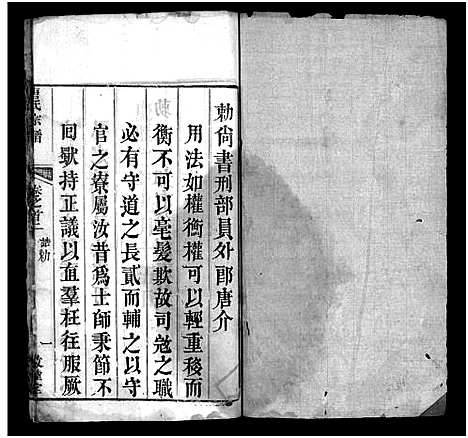 勅尚書刑部員外郎唐介
用法如權衡權可以輕重移而
衡不可以毫髮欺故司冦之職
必有守道之長貳而輔之以守
官之寮屬汝昔爲士師秉節不
囘獄持正議以直羣枉往服厥
氏宗譜
卷之首
誥勅
一